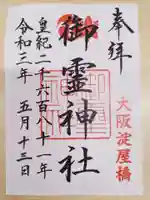 奉拝
大阪淀屋橋
御霊神社
皇紀二千六百八十一年
令和三年 五月十三日